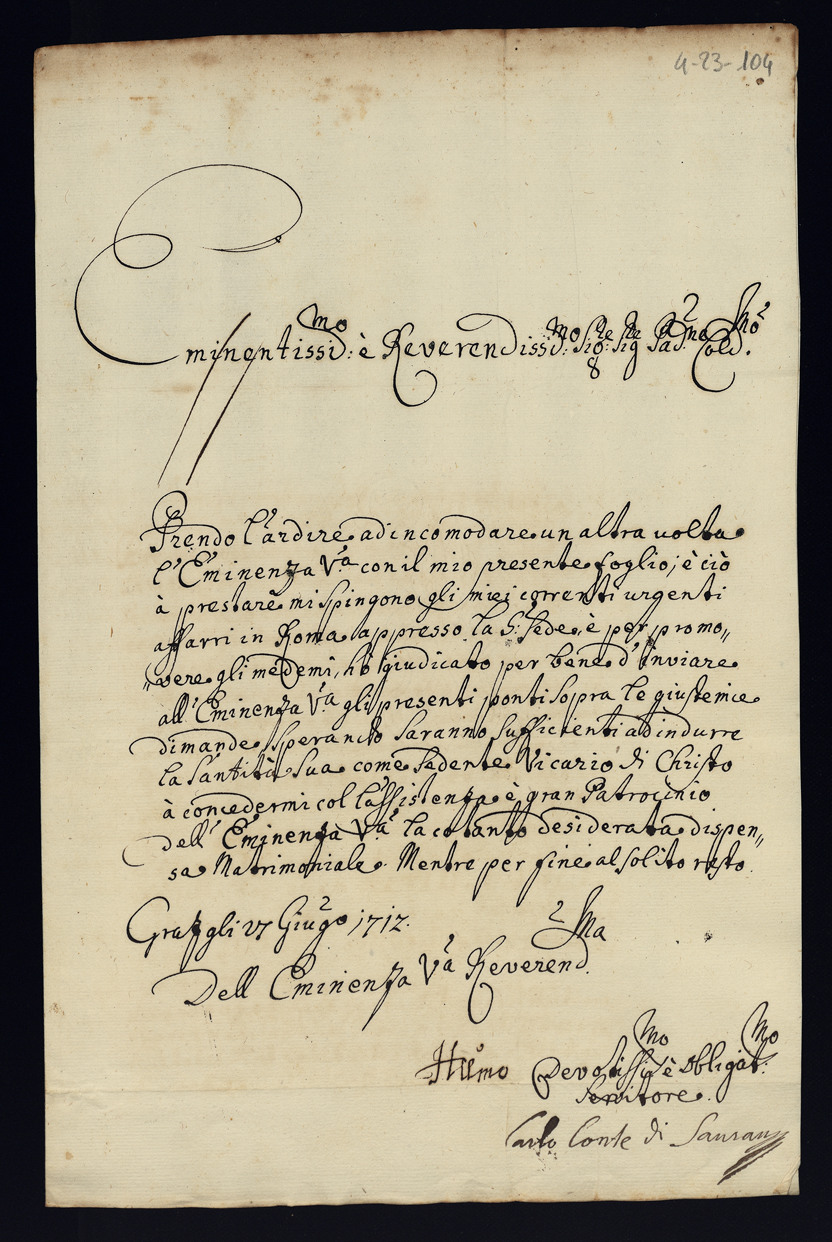 4-23-104
Eminentissi:mo è Reverendissi:mo Sig:re Sig:re Pad:ne Col:mo
Prendo l'ardire ad incomodare un altra volta
l'Eminenza V:a con il mio presente foglio; è ciò
à prestare mi spingono gli miei correnti urgenti
affarri in Roma appresso la S: Sede, è per promo„
„vere gli medemi, hò giudicato per bene d'Inviare
all'Eminenza V:a gli presenti ponti sopra le giuste mie
dimande, sperando saranno sufficienti ad indurre
la Santità Sua come Sedente Vicario di Christo
à concedermi col l'assistenza è gran Patrocinio
dell'Eminenza V:a la cotanto desiderata dispen„
sa Matrimoniale. Mentre per fine al solito resto.
Graz gli 27 Giugo 1712.
Dell Eminenza V:a Reverend:ma
Hu:mo Devotissi:mo è Obligat:mo
Servitore.
Carlo Conte di Saurau